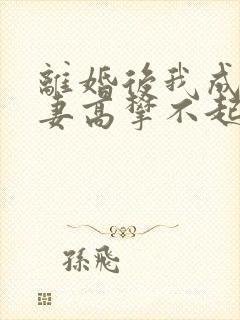 離婚後我成
妻高攀不起
孫飛